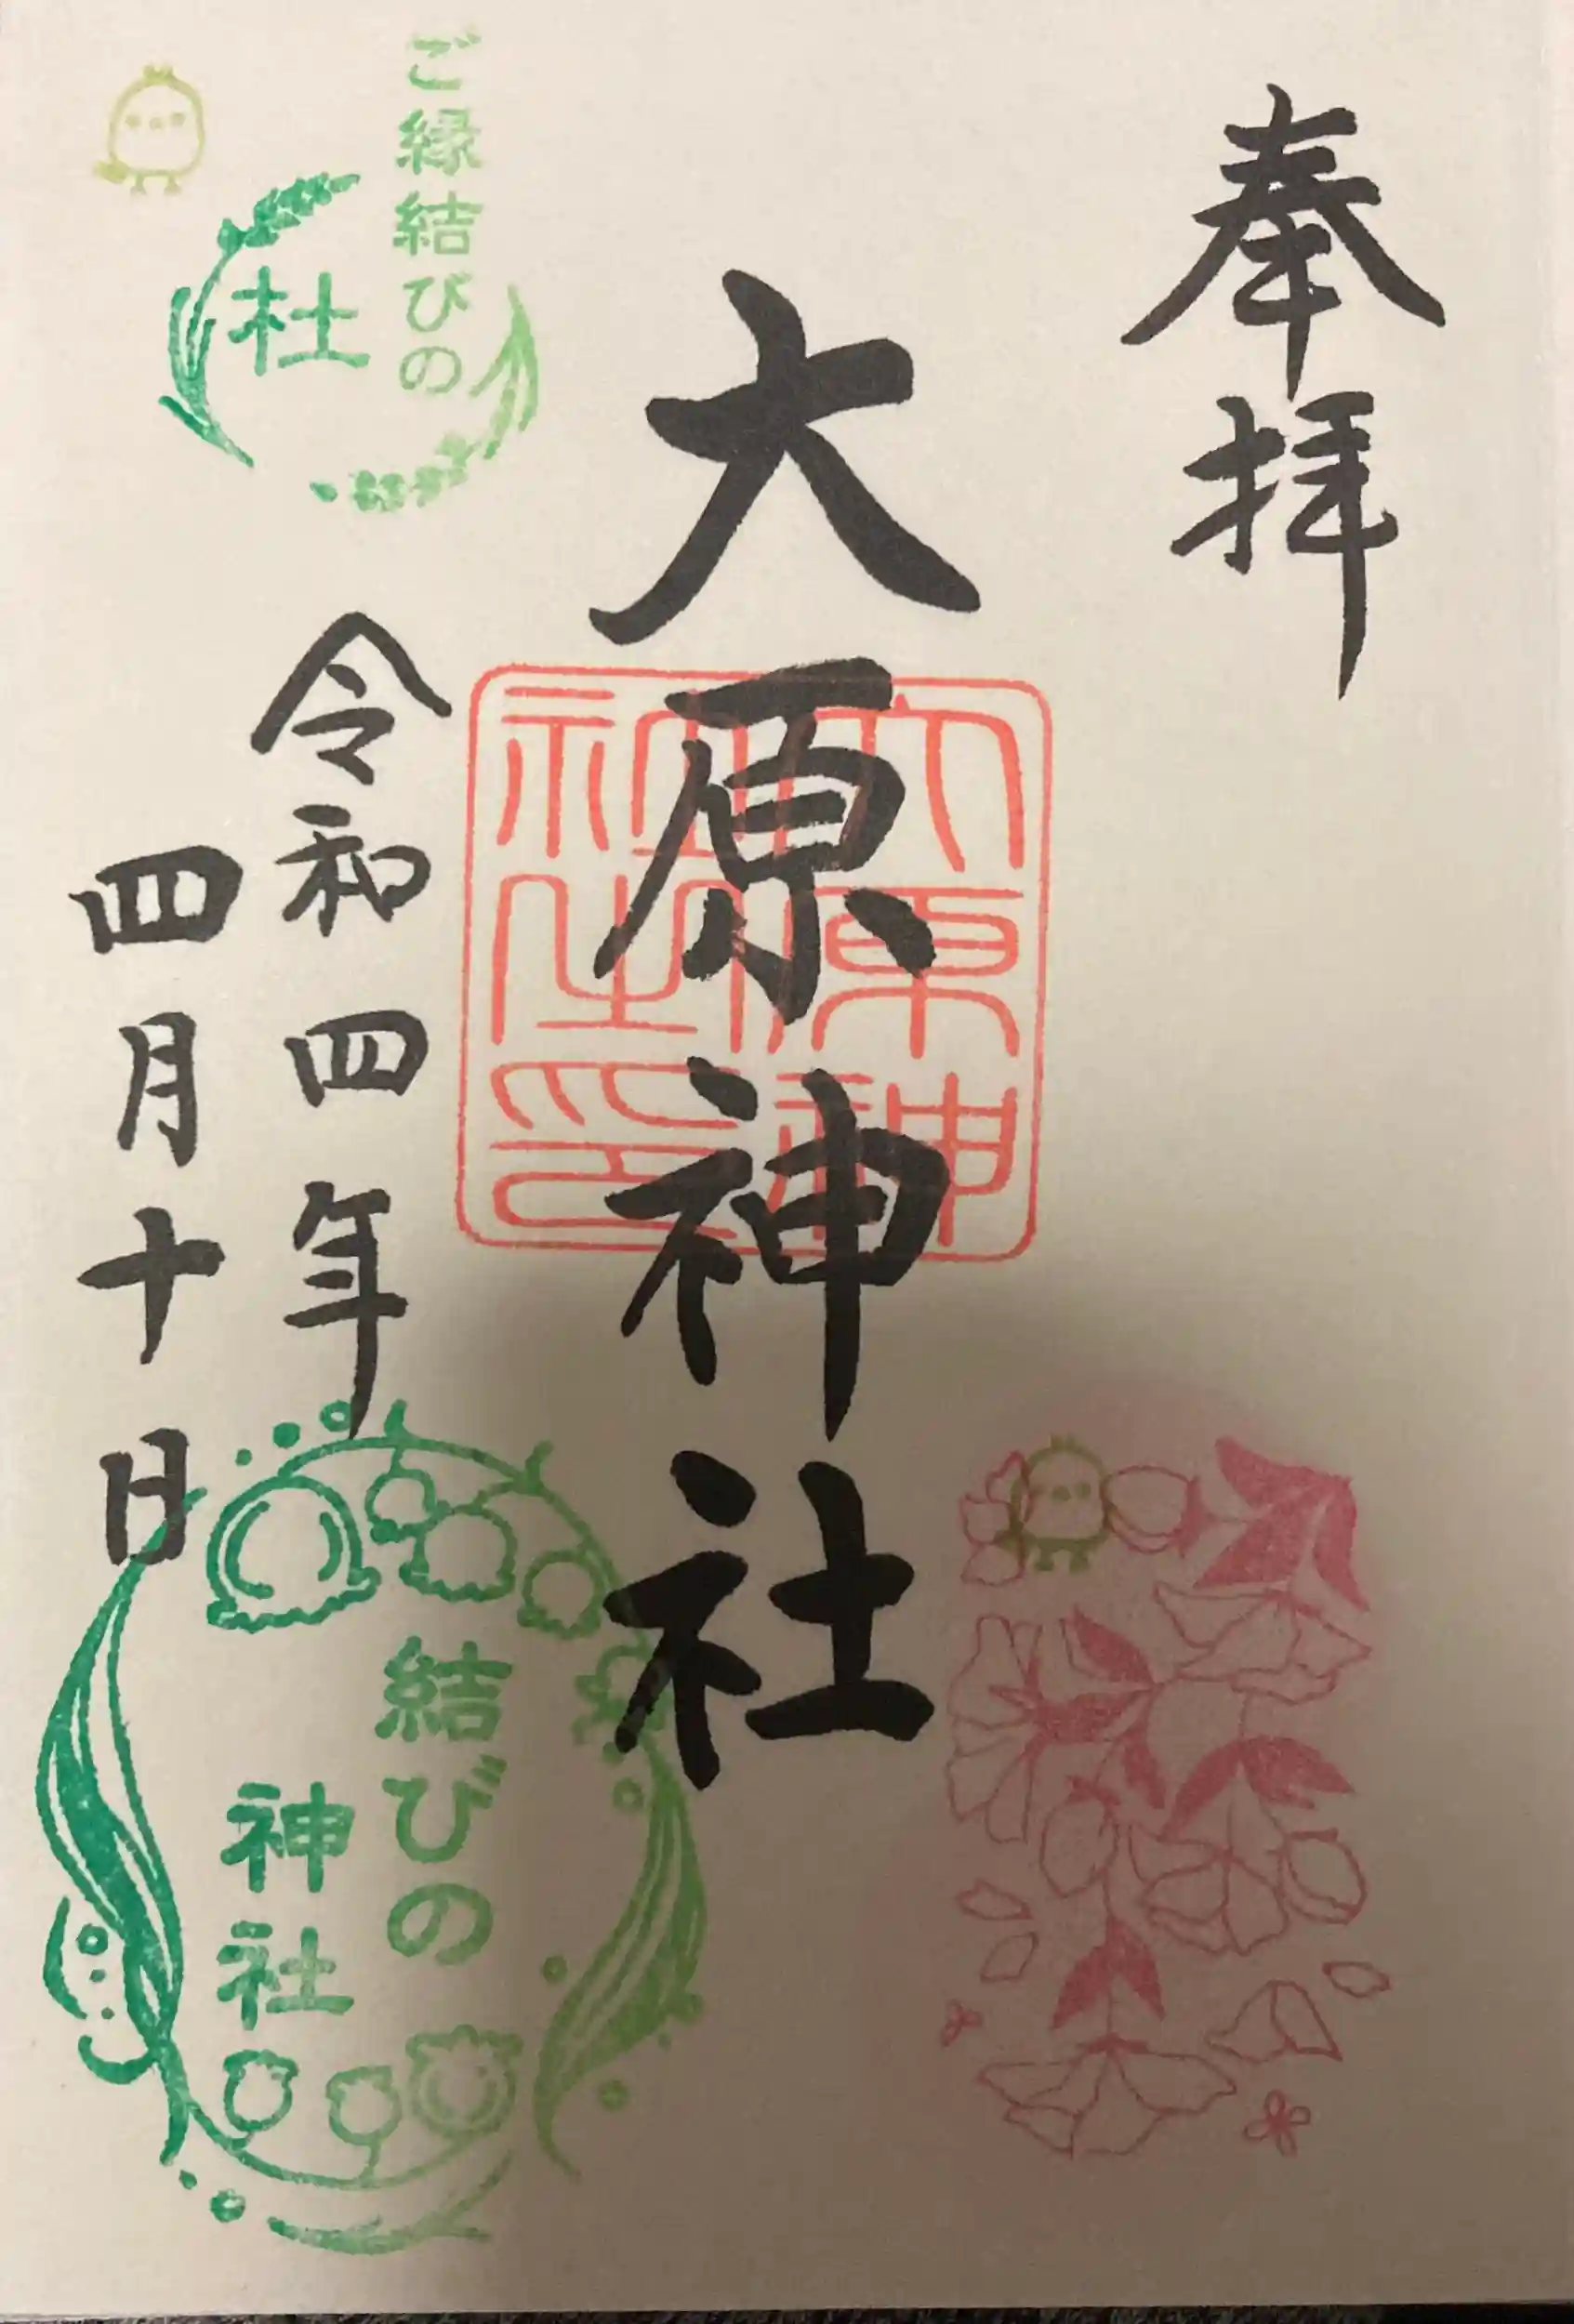 奉拝
大原神社
大原神社之印
令和四年
四月十日
ご縁結びの
杜
結びの
神社